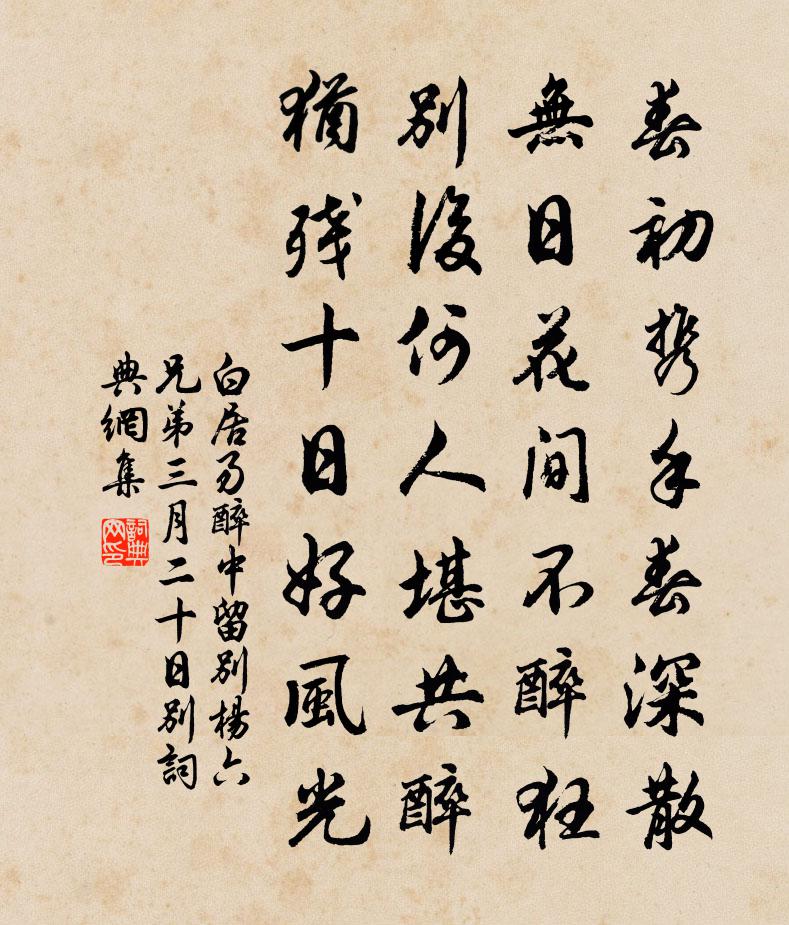 春初携手春深散
無日花間不醉狂
別後何人堪共醉
猶残十日好風光
白居易醉中留別楊六
兄弟三月二十日別詞
典網集
詞典
网印